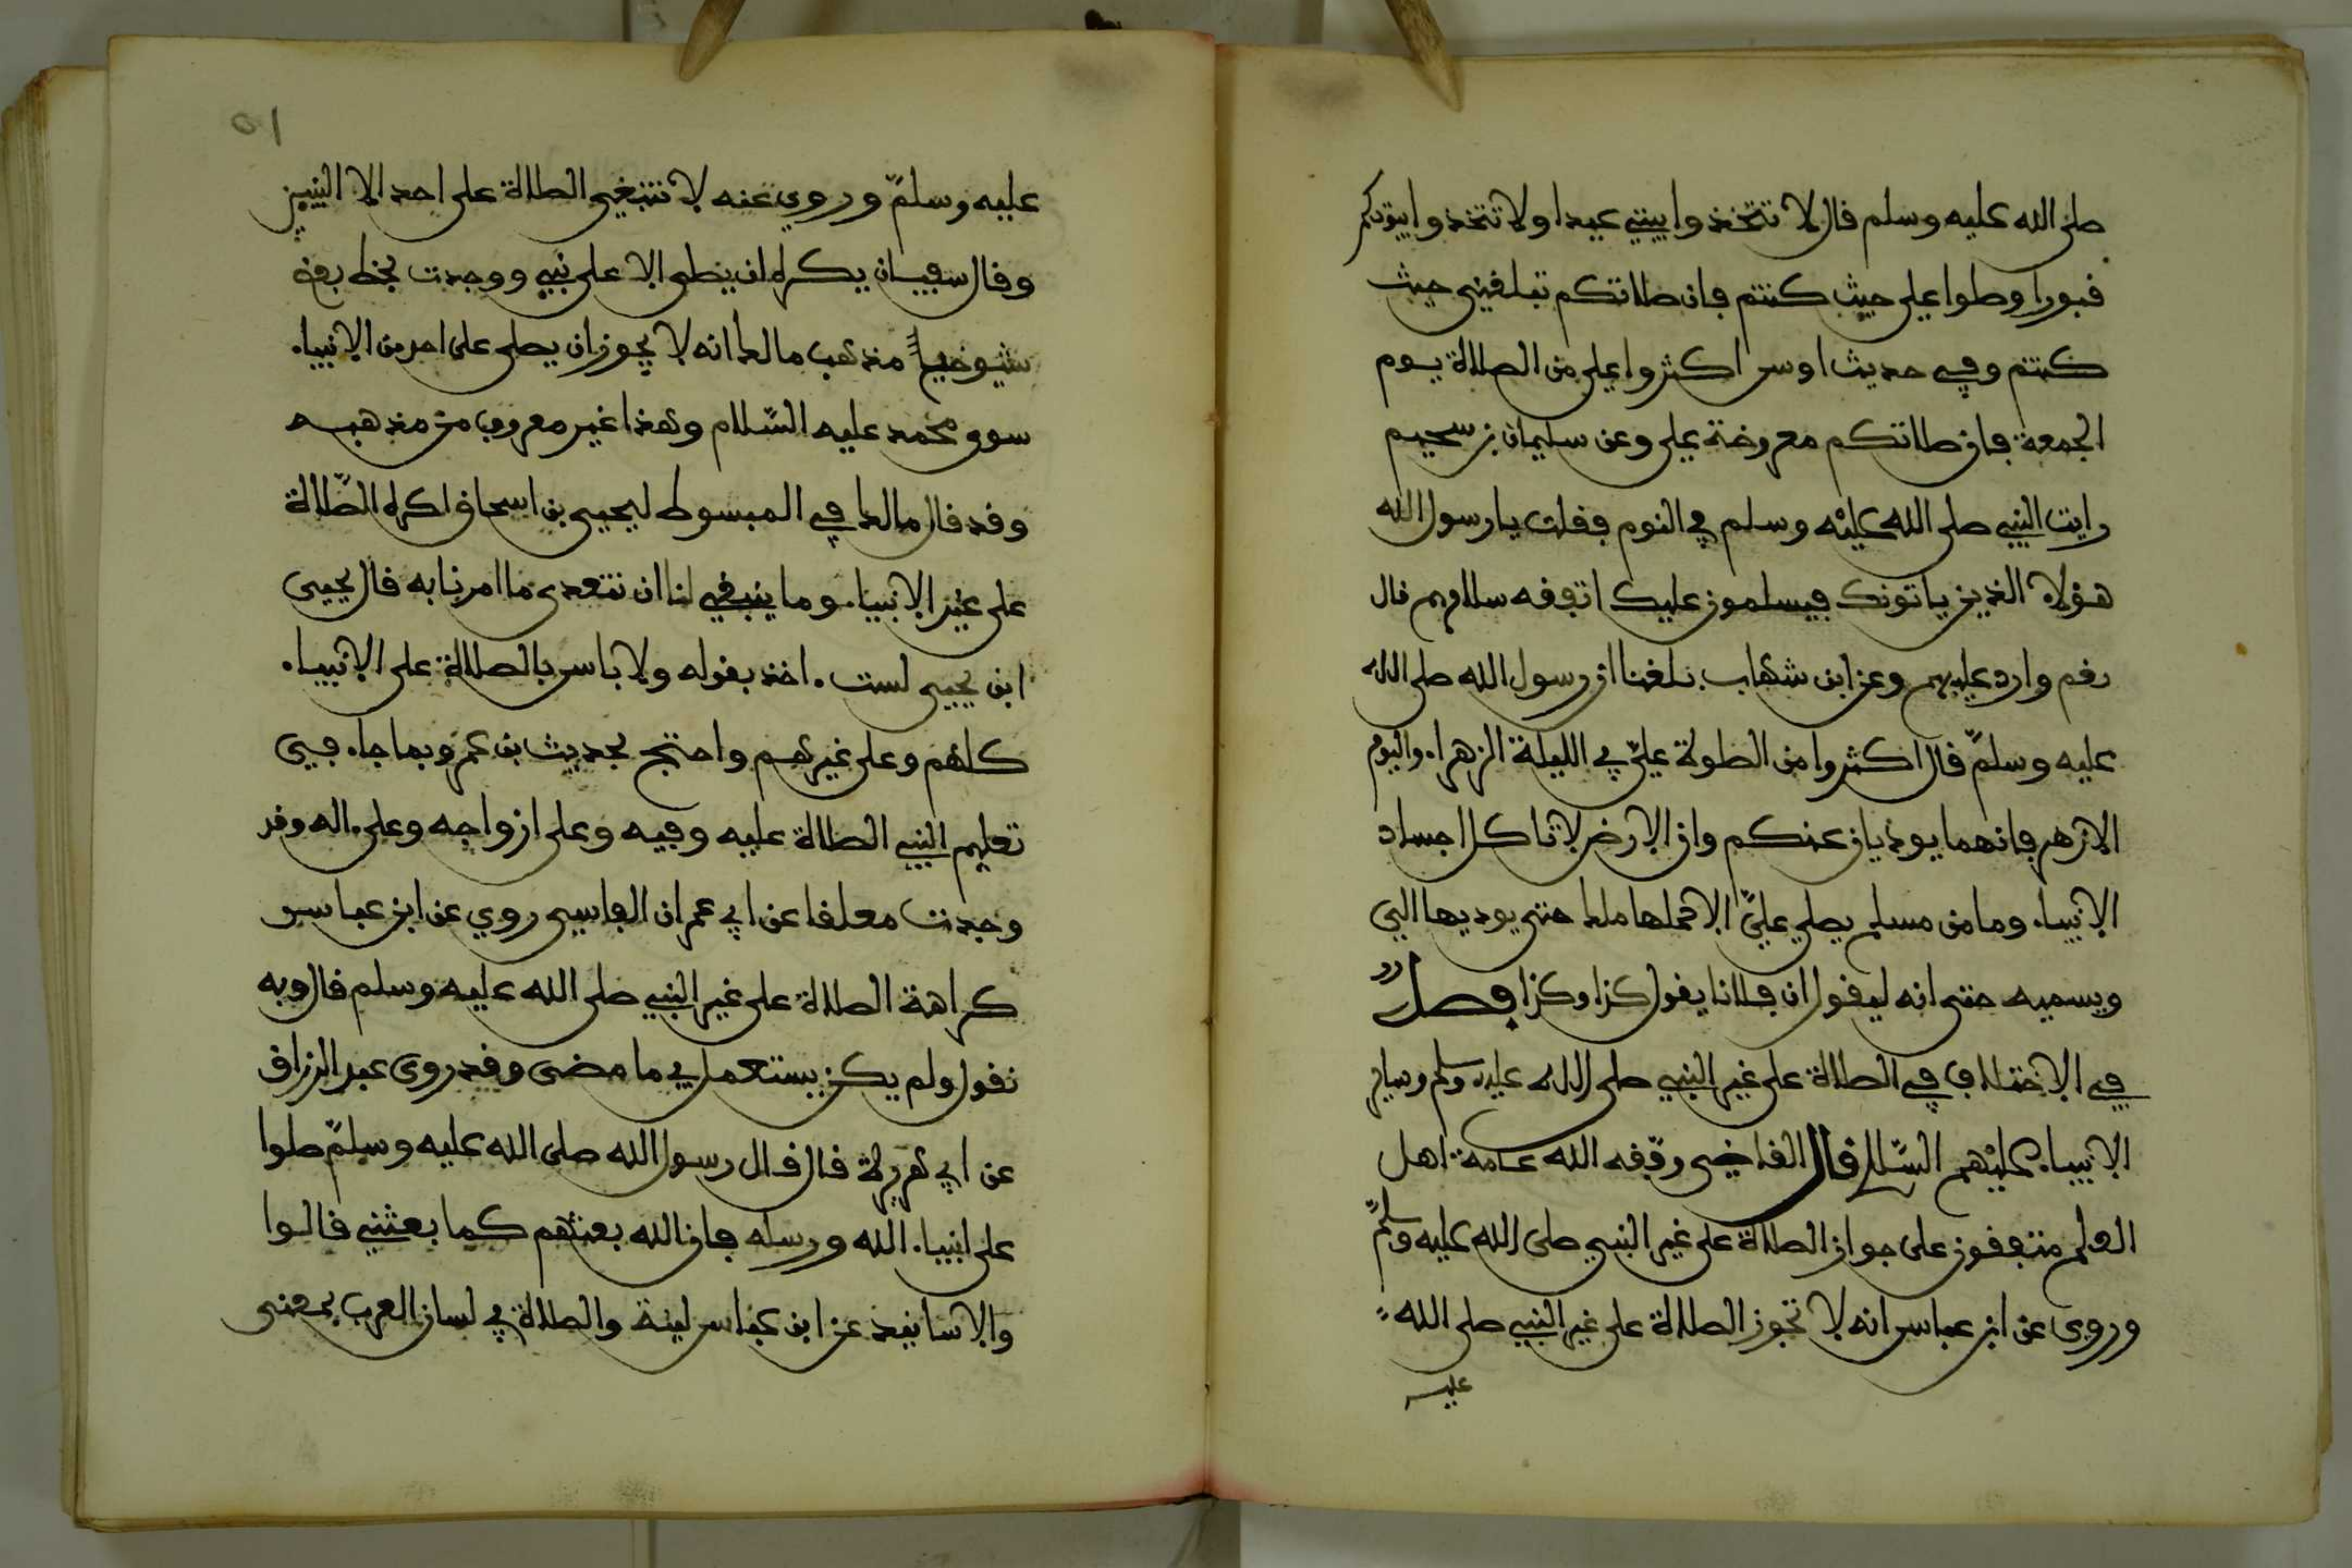 صلى الله عليه وسلم قال لا تتخذوا بيتي عيدا ولا تتخذوا بيوتكم
قبورا وصلوا علي حيث كنتم فان صلاتكم تبلغني حيث
كنتم وفي حديث اوس اكثروا علي من الصلاة يوم
الجمعة فان صلاتكم معروضة علي وعن سليمان بن سحيم
رايت النبي صلى الله عليه وسلم في النوم فقلت يا رسول الله
هؤلاء الذين ياتونك فيسلمون عليك اتفقه سلامهم قال
نعم وارد عليهم وعن ابن شهاب بلغنا ان رسول الله صلى الله
عليه وسلم قال اكثروا من الصلوة علي في الليلة الزهراء واليوم
الازهر فانهما يوديان عنكم وان الارض لا تاكل اجساد
الانبياء وما من مسلم يصلي علي الا حملها ملك حتى يوديها الي
ويسميه حتى انه ليقول ان فلانا يقول كذا وكذا فصل
في الاختلاف في الصلاة على غير النبي صلى الله عليه وسلم وساير
الانبياء عليهم السلام قال القاضي وفقه الله عامة اهل
العلم متفقون على جواز الصلاة على غير النبي صلى الله عليه وسلم
وروى عن ابن عباس انه لا تجوز الصلاة على غير النبي صلى الله
عليه
٥١
عليه وسلم وروي عنه لا تنبغي الصلاة على احد الا النبيين
وقال سفيان يكره ان يصلى الا على نبي ووجدت بخط بعض
شيوخي مذهب مالك انه لا يجوز ان يصلى على احد من الانبياء
سوى محمد عليه السلام وهذا غير معروف من مذهبه
وقد قال مالك في المبسوط ليحيى بن اسحاق اكره الصلاة
على غير الانبياء وما ينبغي لنا ان نتعدى ما امرنا به قال يحيى
ابن يحيى لست اخذ بقوله ولا باس بالصلاة على الانبياء
كلهم وعلى غيرهم واحتج بحديث بن عمر وبما جاء في
تعليم النبي الصلاة عليه وفيه وعلى ازواجه وعلى اله وقد
وجدت معلقا عن ابي عمران الفاسي روي عن ابن عباس
كراهة الصلاة على غير النبي صلى الله عليه وسلم قال وبه
نقول ولم يكن يستعمل في ما مضى وقد روى عبد الرزاق
عن ابي هريرة قال قال رسول الله صلى الله عليه وسلم صلوا
على انبياء الله ورسله فان الله بعثهم كما بعثني قالوا
والاسانيد عن ابن عباس لينة والصلاة في لسان العرب بمعنى